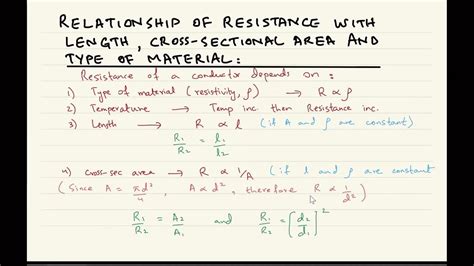 RELATIONSHIP OF RESISTANCE WITH
LENGTH, CROSS-SECTIONAL AREA AND
TYPE OF MATERIAL:
Resistance of a conductor depends on:
1) Type of material (resistivity, ρ) → R ∝ ρ
2) Temperature → Temp inc. then Resistance inc.
3) Length → R ∝ l (if A and ρ are constant)
R₁/R₂ = l₁/l₂
4) cross-sec area → R ∝ 1/A (if l and ρ are constant)
(Since A = πd²/4, A ∝ d², therefore R ∝ 1/d²)
R₁/R₂ = A₂/A₁ and R₁/R₂ = [d₂/d₁]²